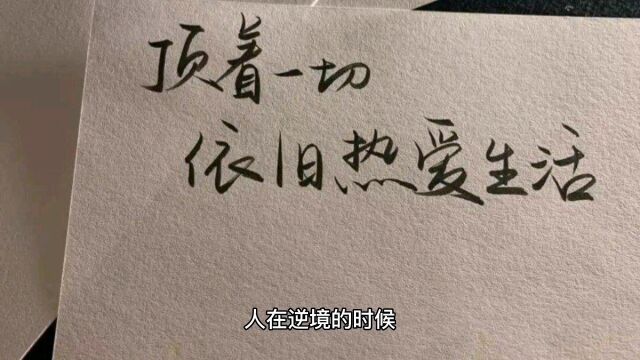 顶着一切
依旧热爱生活
人在逆境的时候